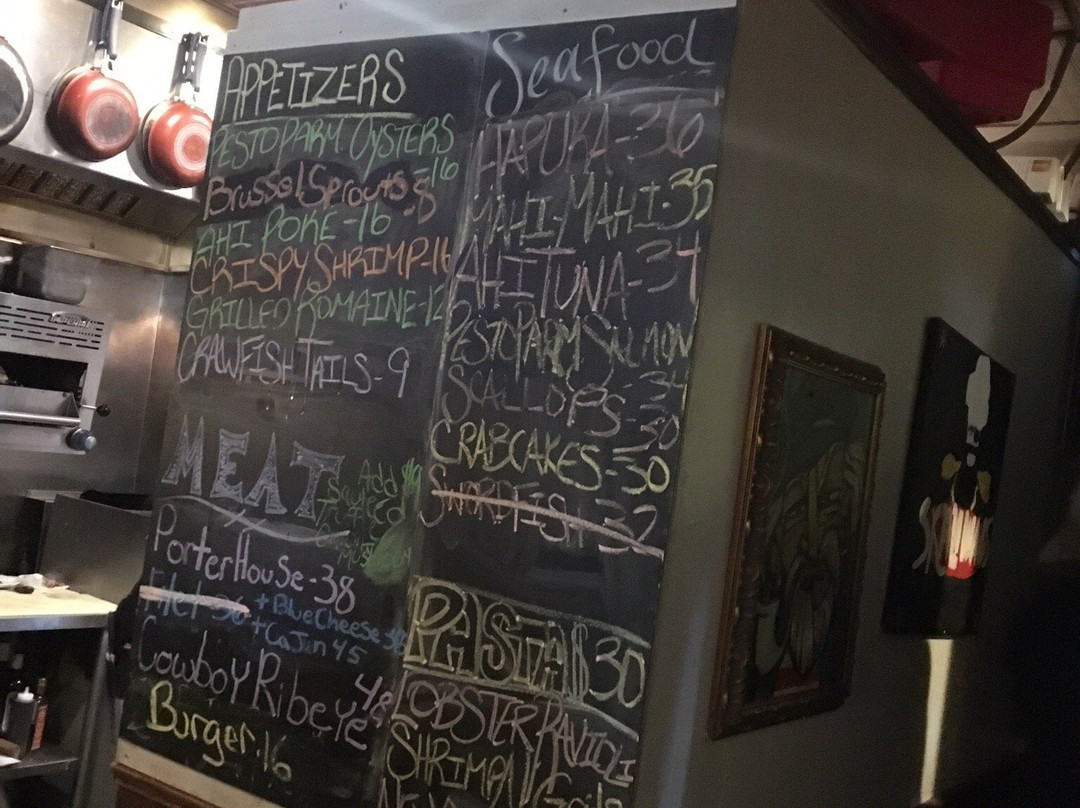 APPETIZERS
PESTO PARM OYSTERS
-16
Brussel Sprouts-8
AHI POKE-16
CRISPY SHRIMP-16
GRILLED ROMAINE-12
CRAWFISH TAILS-9
MEAT
Add
PorterHouse-38
Filet 36 + Blue Cheese 38
+ Cajin 45
Cowboy Ribeye
48
Burger.16
Seafood
HAPUKA-36
MAHI-MAHI-35
AHI TUNA-34
PESTO PARM SALMON
-34
SCALLOPS-30
CRABCAKES-30
SWORDFISH-32
PASTAS 30
LOBSTER RAVIOLI
SHRIMP